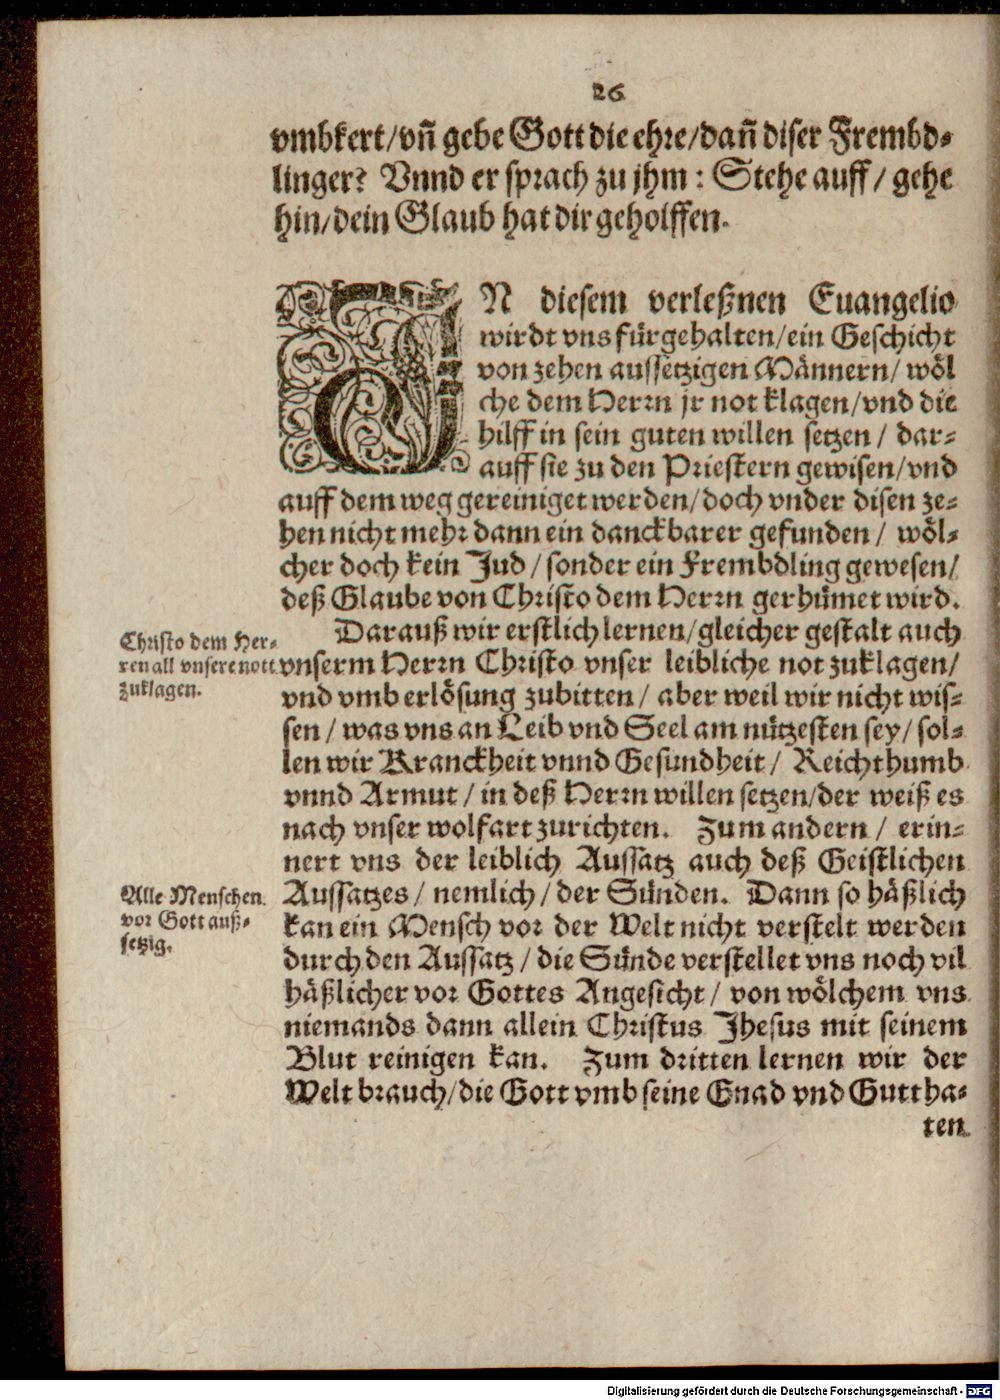 26
vmbkert/vñ gebe Gott die ehre/dañ diser Frembd-
linger? Vnnd er sprach zu jhm: Stehe auff/ gehe
hin/dein Glaub hat dir geholffen.
IN diesem verleßnen Euangelio
wirdt vns fürgehalten/ein Geschicht
von zehen aussetzigen Männern/ wöl
che dem Herrn jr not klagen/vnd die
hilff in sein guten willen setzen/ dar-
auff sie zu den Priestern gewisen/vnd
auff dem weg gereiniget werden/doch vnder disen ze-
hen nicht mehr dann ein danckbarer gefunden/ wöl-
cher doch kein Jud/sonder ein Frembdling gewesen/
deß Glaube von Christo dem Herrn gerhümet wird.
Darauß wir erstlich lernen/gleicher gestalt auch
Christo dem Her-
ren all vnsere nott
zuklagen.
vnserm Herrn Christo vnser leibliche not zuklagen/
vnd vmb erlösung zubitten/ aber weil wir nicht wis-
sen/ was vns an Leib vnd Seel am nützesten sey/ sol-
len wir Kranckheit vnnd Gesundheit/ Reichthumb
vnnd Armut/ in deß Herrn willen setzen/der weiß es
nach vnser wolfart zurichten. Zum andern/ erin-
nert vns der leiblich Aussatz auch deß Geistlichen
Alle Menschen
vor Gott auß-
setzig.
Aussatzes/ nemlich/ der Sünden. Dann so häßlich
kan ein Mensch vor der Welt nicht verstelt werden
durch den Aussatz/ die Sünde verstellet vns noch vil
häßlicher vor Gottes Angesicht/ von wölchem vns
niemands dann allein Christus Jhesus mit seinem
Blut reinigen kan. Zum dritten lernen wir der
Welt brauch/die Gott vmb seine Gnad vnd Guttha-
ten
Digitalisierung gefördert durch die Deutsche Forschungsgemeinschaft - DFG